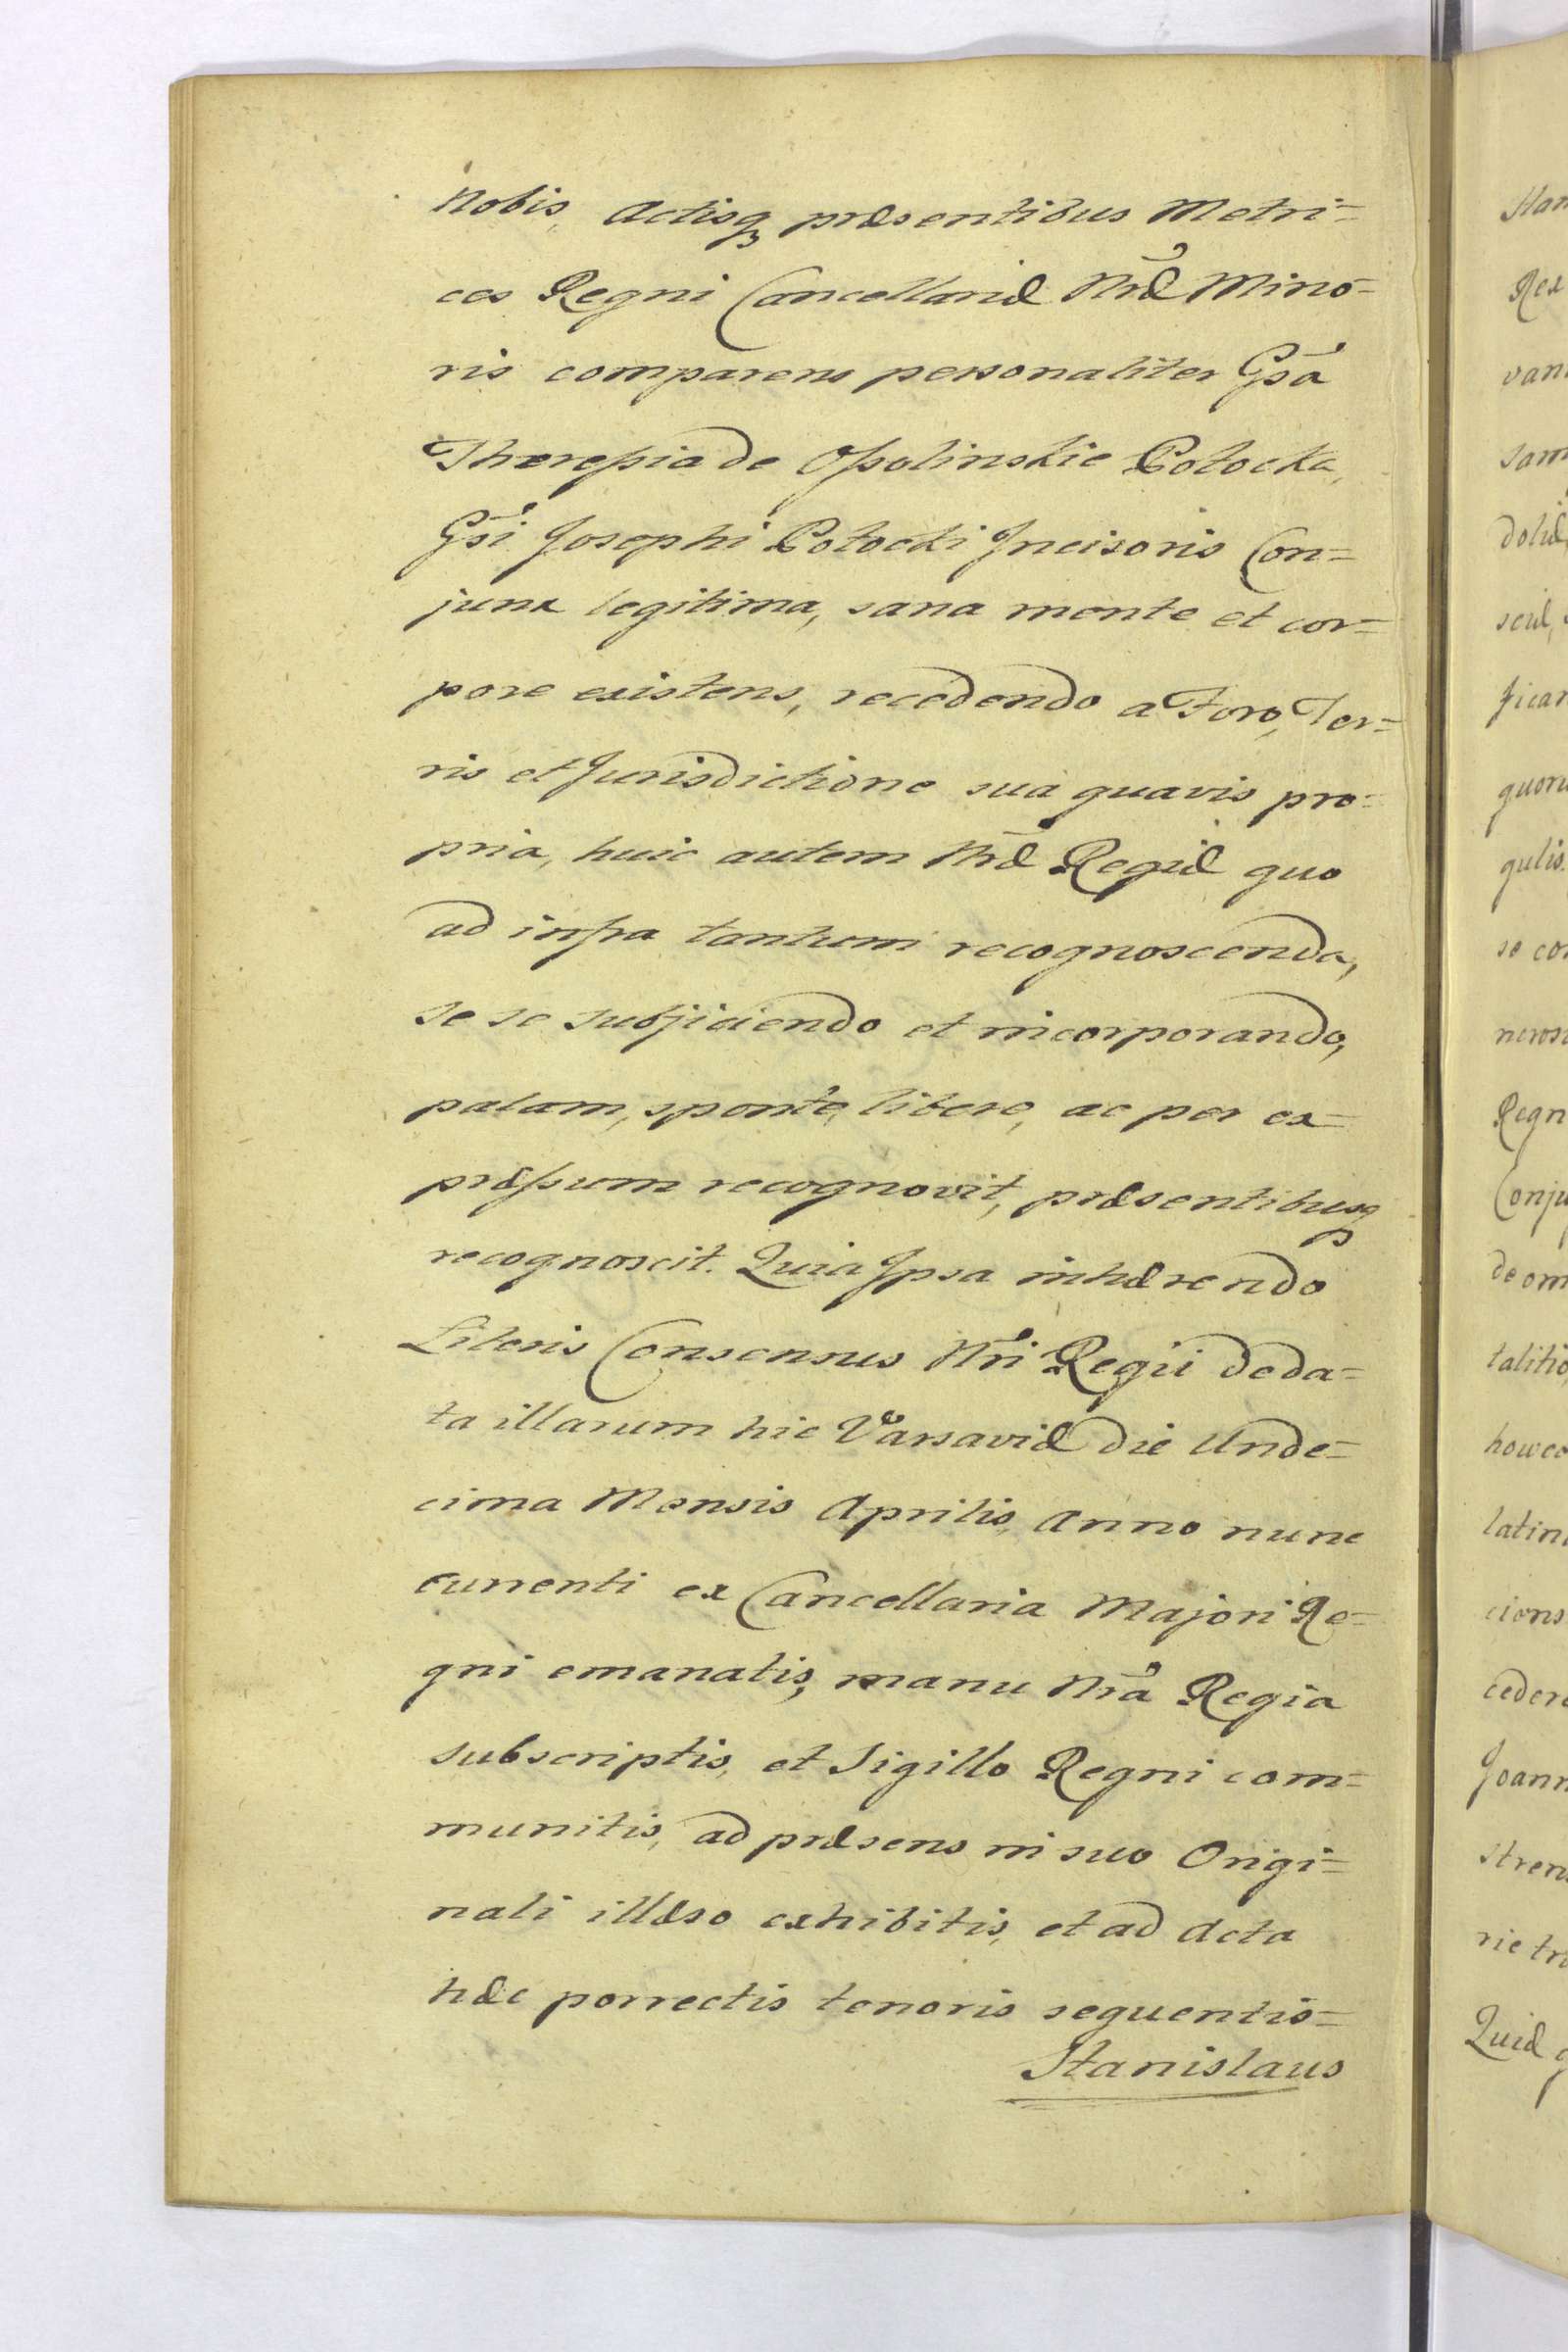 Nobis, Actisq, præsentibus Metri=
ces Regni Cancellariæ Nræ Mino=
ris comparens personaliter Gsa
Theressia de Ossolinskie Potocka,
Gsi Josephi Potocki Incisoris Con=
junx legitima, sana mente et cor=
pore existens, recedendo a Foro, Ter=
ris et Jurisdictione sua quavis pro=
pria, huic autem Nræ Regiæ quo
ad infra tantum recognoscenda,
se se subjiciendo et incorporando,
palam, sponte, libere, ac per ex=
præssum recognovit, præsentibusq
recognoscit. Quia Ipsa inhærendo
Literis Consensus Nri Regii de da=
ta illarum hic Varsaviæ die Unde=
cima Mensis Aprilis, Anno nunc
currenti ex Cancellaria Majori Re=
gni emanatis, manu Nra Regia
subscriptis, et Sigillo Regni com=
munitis, ad præsens in suo Origi=
nali illæso exhibitis, et ad Acta
hæc porrectis tenoris sequentis=
Stanislaus
Stan
Rex
van
sam
doliæ,
sciæ,
ficar
quoru
gulis.
se co
neros
Regn
Conju
de om
talitio
howec
latin
ciens
cedere
Joann
stren
rie tr
Quid q